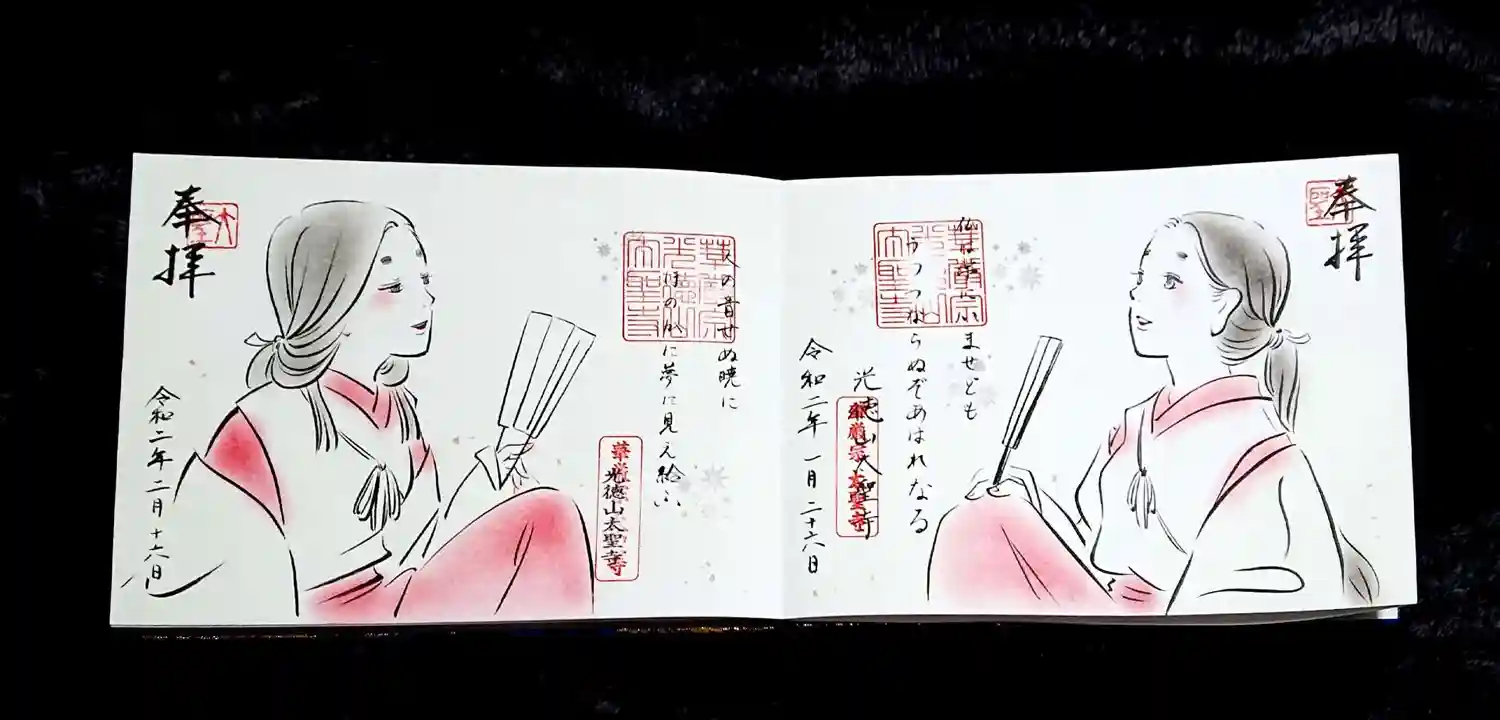 奉拝
仏は常に
ませども
うつつならぬぞあはれなる
光徳山太聖寺
華厳宗太聖寺
令和二年一月二十六日
華厳宗
光徳山
太聖寺
人の音せぬ暁に
ほのかに夢に見え給ふ
華厳宗
光徳山太聖寺
華厳宗
光徳山
太聖寺
奉拝
令和二年二月十六日